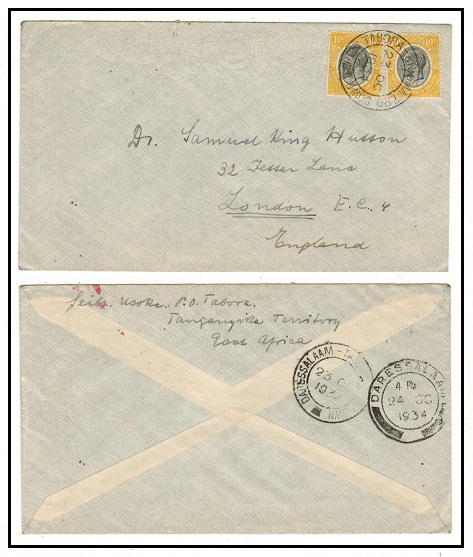 10c 10c
TABORA
22 OC
Dr. Samuel King Hutson
32 Tesser Lane
London E.C. 4
England
Seibt. Usoke. P.O. Tabora.
Tanganyika Territory
East Africa
DARESSALAAM
23 OC
1934
DARESSALAAM
4 PM
24 OC
1934